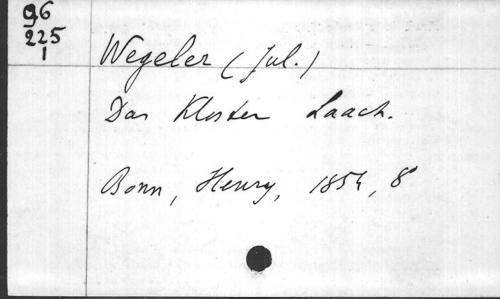 96
225
1
Wegeler (Jul.)
Das Kloster Laach.
Bonn, Henry, 1854, 8°